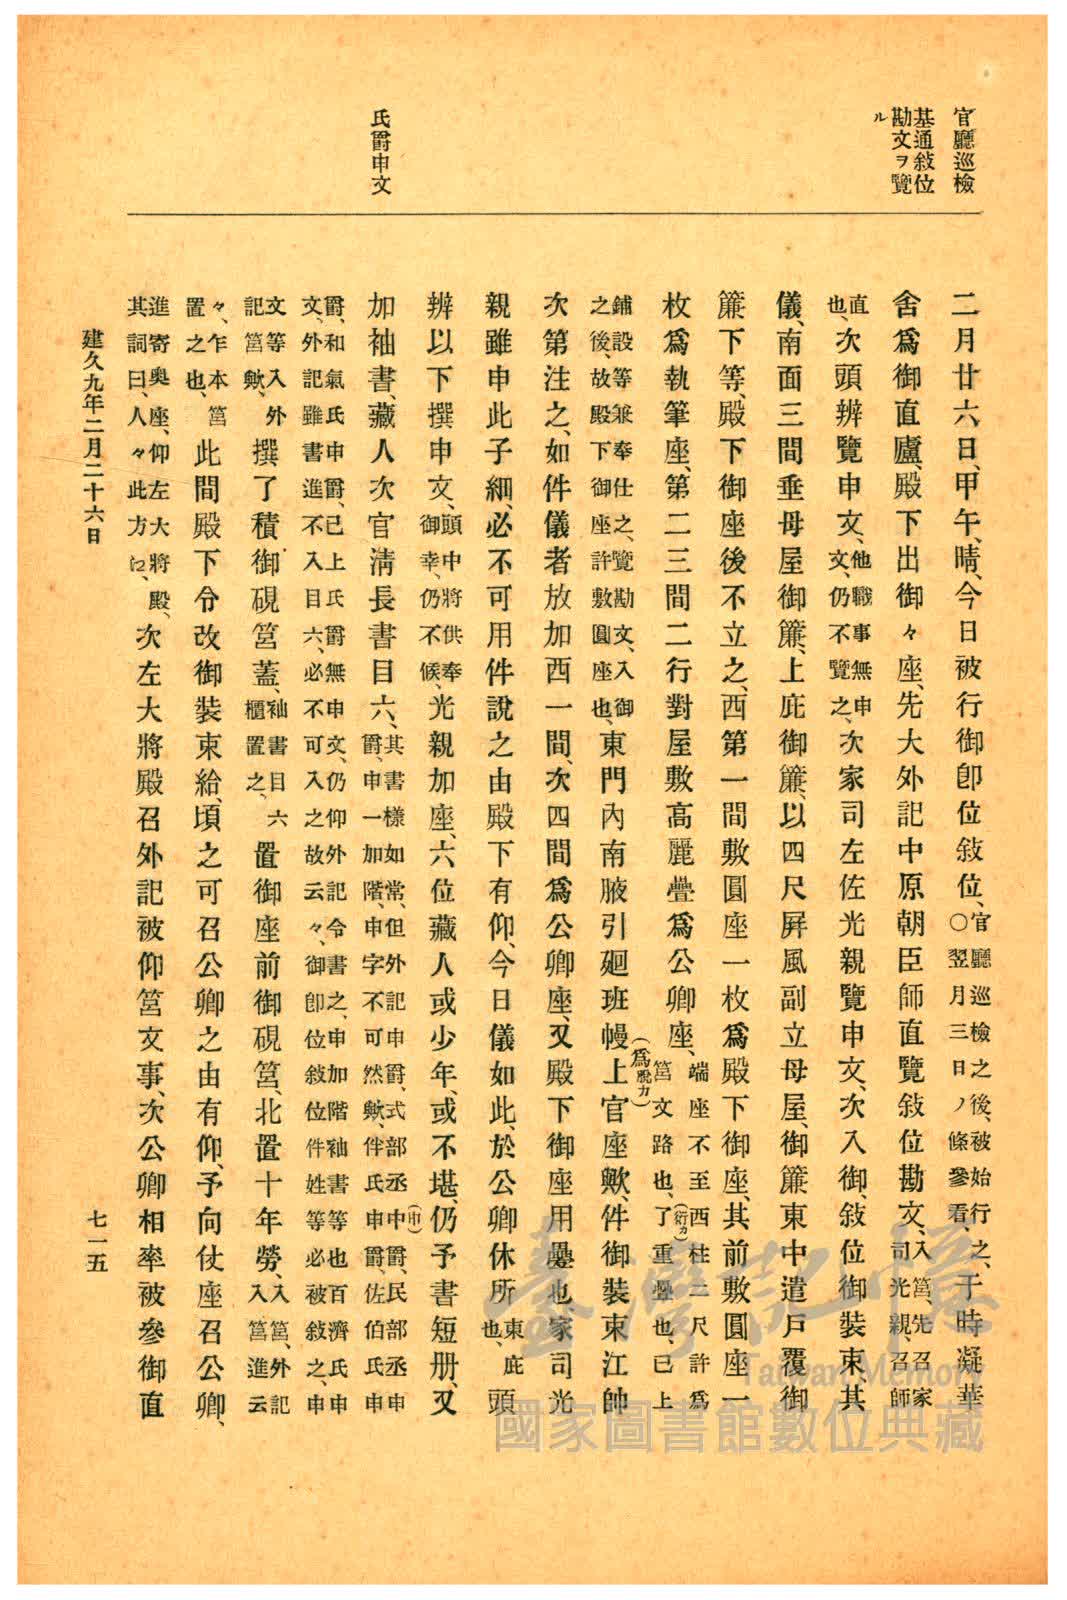 官廳巡檢
基通敍位
勘文ヲ覽
ル
氏爵申文
二月廿六日、甲午、晴、今日被行御卽位敍位、官廳巡檢之後、被始行之、○翌月三日ノ條參看、于時凝華
舍爲御直廬、殿下出御々座、先大外記中原朝臣師直覽敍位勘文、入筥、先召家司光親、召師
直也、次頭辨覽申文、他職事無申文、仍不覽之、次家司左佐光親覽申文、次入御、敍位御裝束其
儀、南面三間垂母屋御簾、上庇御簾、以四尺屛風副立母屋、御簾東中遣戶覆御
簾下等、殿下御座後不立之、西第一間敷圓座一枚爲殿下御座、其前敷圓座一
枚爲執筆座、第二三間二行對屋敷高麗疊爲公卿座、端座不至西柱二尺許爲筥文路也、了重疊也、已上
(衍カ)
鋪設等兼奉仕之、覽勘文、入御之後、故殿下御座許敷圓座也、東門內南腋引廻班幔上官座歟、件御裝束江帥
(爲脫カ)
次第注之、如件儀者放加西一間、次四間爲公卿座、又殿下御座用疊也、家司光
親雖申此子細、必不可用件說之由殿下有仰、今日儀如此、於公卿休所東庇也、頭
辨以下撰申文、頭中將供奉御幸、仍不候、光親加座、六位藏人或少年、或不堪、仍予書短册、又
加袖書、藏人次官淸長書目六、其書樣如常、但外記申爵、式部丞中爵、民部丞申爵、申一加階、申字不可然歟、伴氏申爵、佐伯氏申
(申)
爵、和氣氏申爵、已上氏爵無申文、仍仰外記令書之、申加階袖書等也、百濟氏申文、外記雖書進不入目六、必不可入之故云々、御卽位敍位件姓等必被敍之、申
文等入外記筥歟、撰了積御硯筥蓋、袖書目六櫃置之、置御座前御硯筥、北置十年勞、入筥、外記入筥進云
々、乍本筥置之也、此間殿下令改御裝束給、頃之可召公卿之由有仰、予向仗座召公卿、
進寄奥座、仰左大將殿、其詞曰、人々此方に、次左大將殿召外記被仰筥文事、次公卿相率被參御直
建久九年二月二十六日
七一五
臺灣記憶
Taiwan Memory
國家圖書館數位典藏